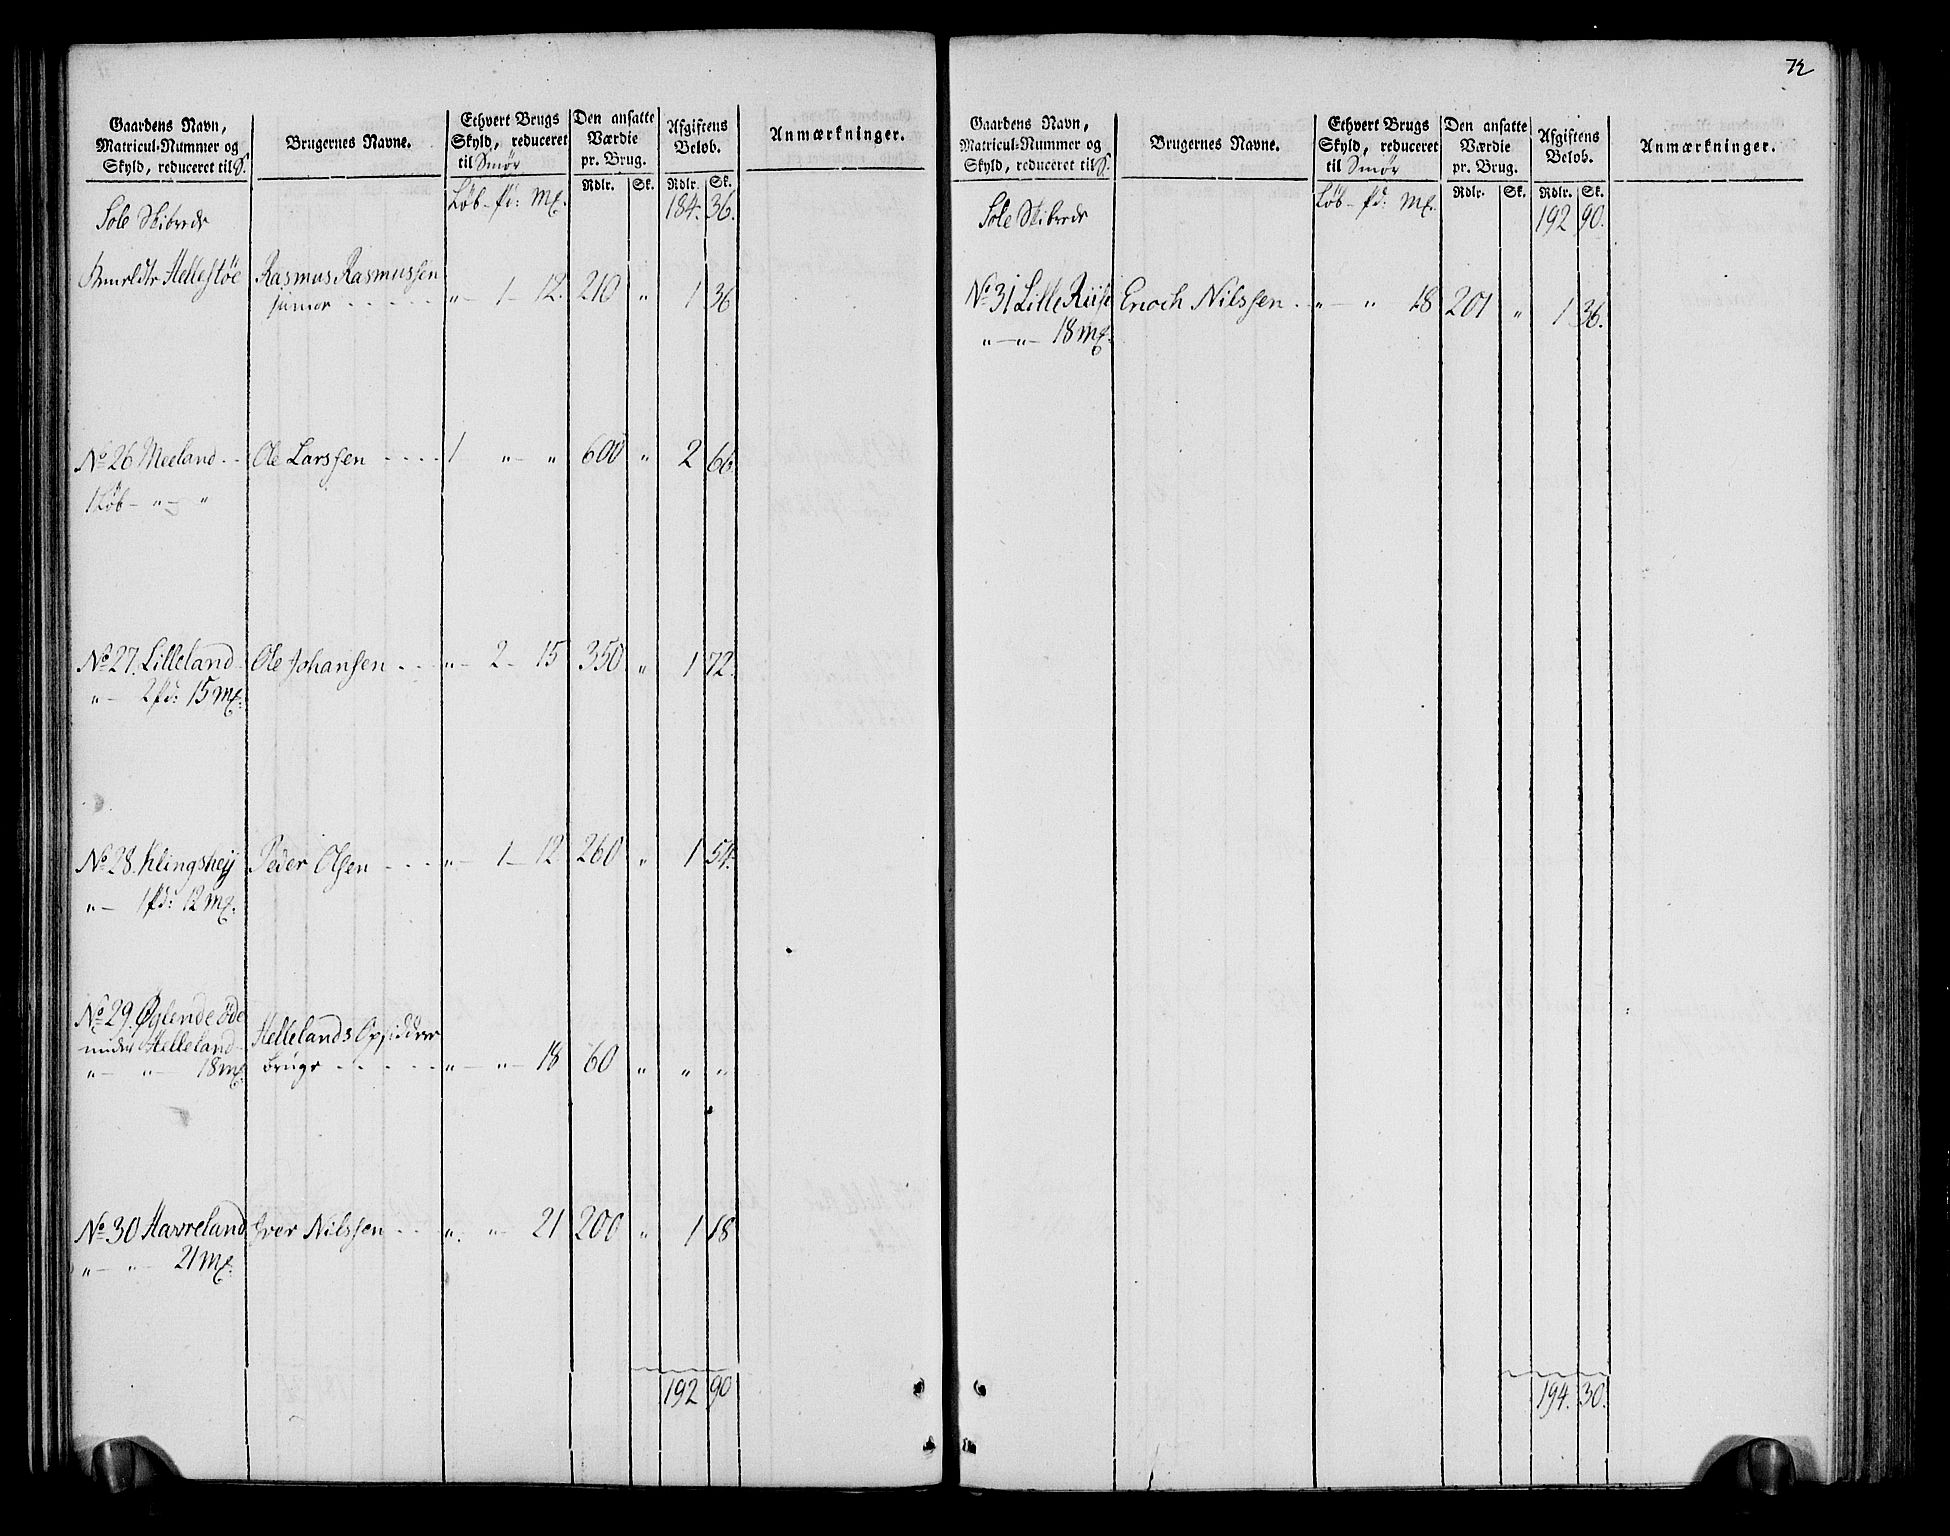 72
Gaardens Navn, Matricul-Nummer og Skyld, reduceret til S. | Brugernes Navne. | Ethvert Brugs Skyld, reduceret til Smør | Den ansatte Værdie pr. Brug. | Afgiftens Beløb. | Anmærkninger.
Rdlr. | Sk. | Rdlr. | Sk.
Løb - pd: Mk. | 184. | 36.
Sole Skibrede
Hellestøe | Rasmus Rasmussen
junior - - - - - | " - 1 - 12. | 210 | " | 1 | 36
No 26 Meeland - - | Ole Larssen - - - - | 1 " - " | 600 | " | 2 | 66
1 Løb - " - "
No 27. Lilleland - | Ole Johansen - - - | " - 2 - 15 | 350 | " | 1 | 72.
" - 2 pd: 15 Mk:
No 28. Klingsheij | Peder Olsen - - - - | " - 1 - 12 | 260 | " | 1 | 54.
" - 1 pd: 12 Mk:
No 29. Øglende öde
under Helleland | Hellelands Opsiddere
" - " - 18 Mk | bruge - - - - - | " - " - 18 | 60 | " | " | "
No 30 Havreland | Iver Nilssen - - | " - " - 21 | 200 | " | 1 | 18
" - " - 21 Mk:
192 | 90
Gaardens Navn, Matricul-Nummer og Skyld, reduceret til S. | Brugernes Navne. | Ethvert Brugs Skyld, reduceret til Smør | Den ansatte Værdie pr. Brug. | Afgiftens Beløb. | Anmærkninger.
Rdlr. | Sk. | Rdlr. | Sk.
Løb - pd: Mk. | 192 | 90.
Sole Skibrede
No 31 Lille Riise | Enoch Nilssen - | " - " 18 | 201 | " | 1 | 36.
" - " - 18 Mk:
194. | 30.